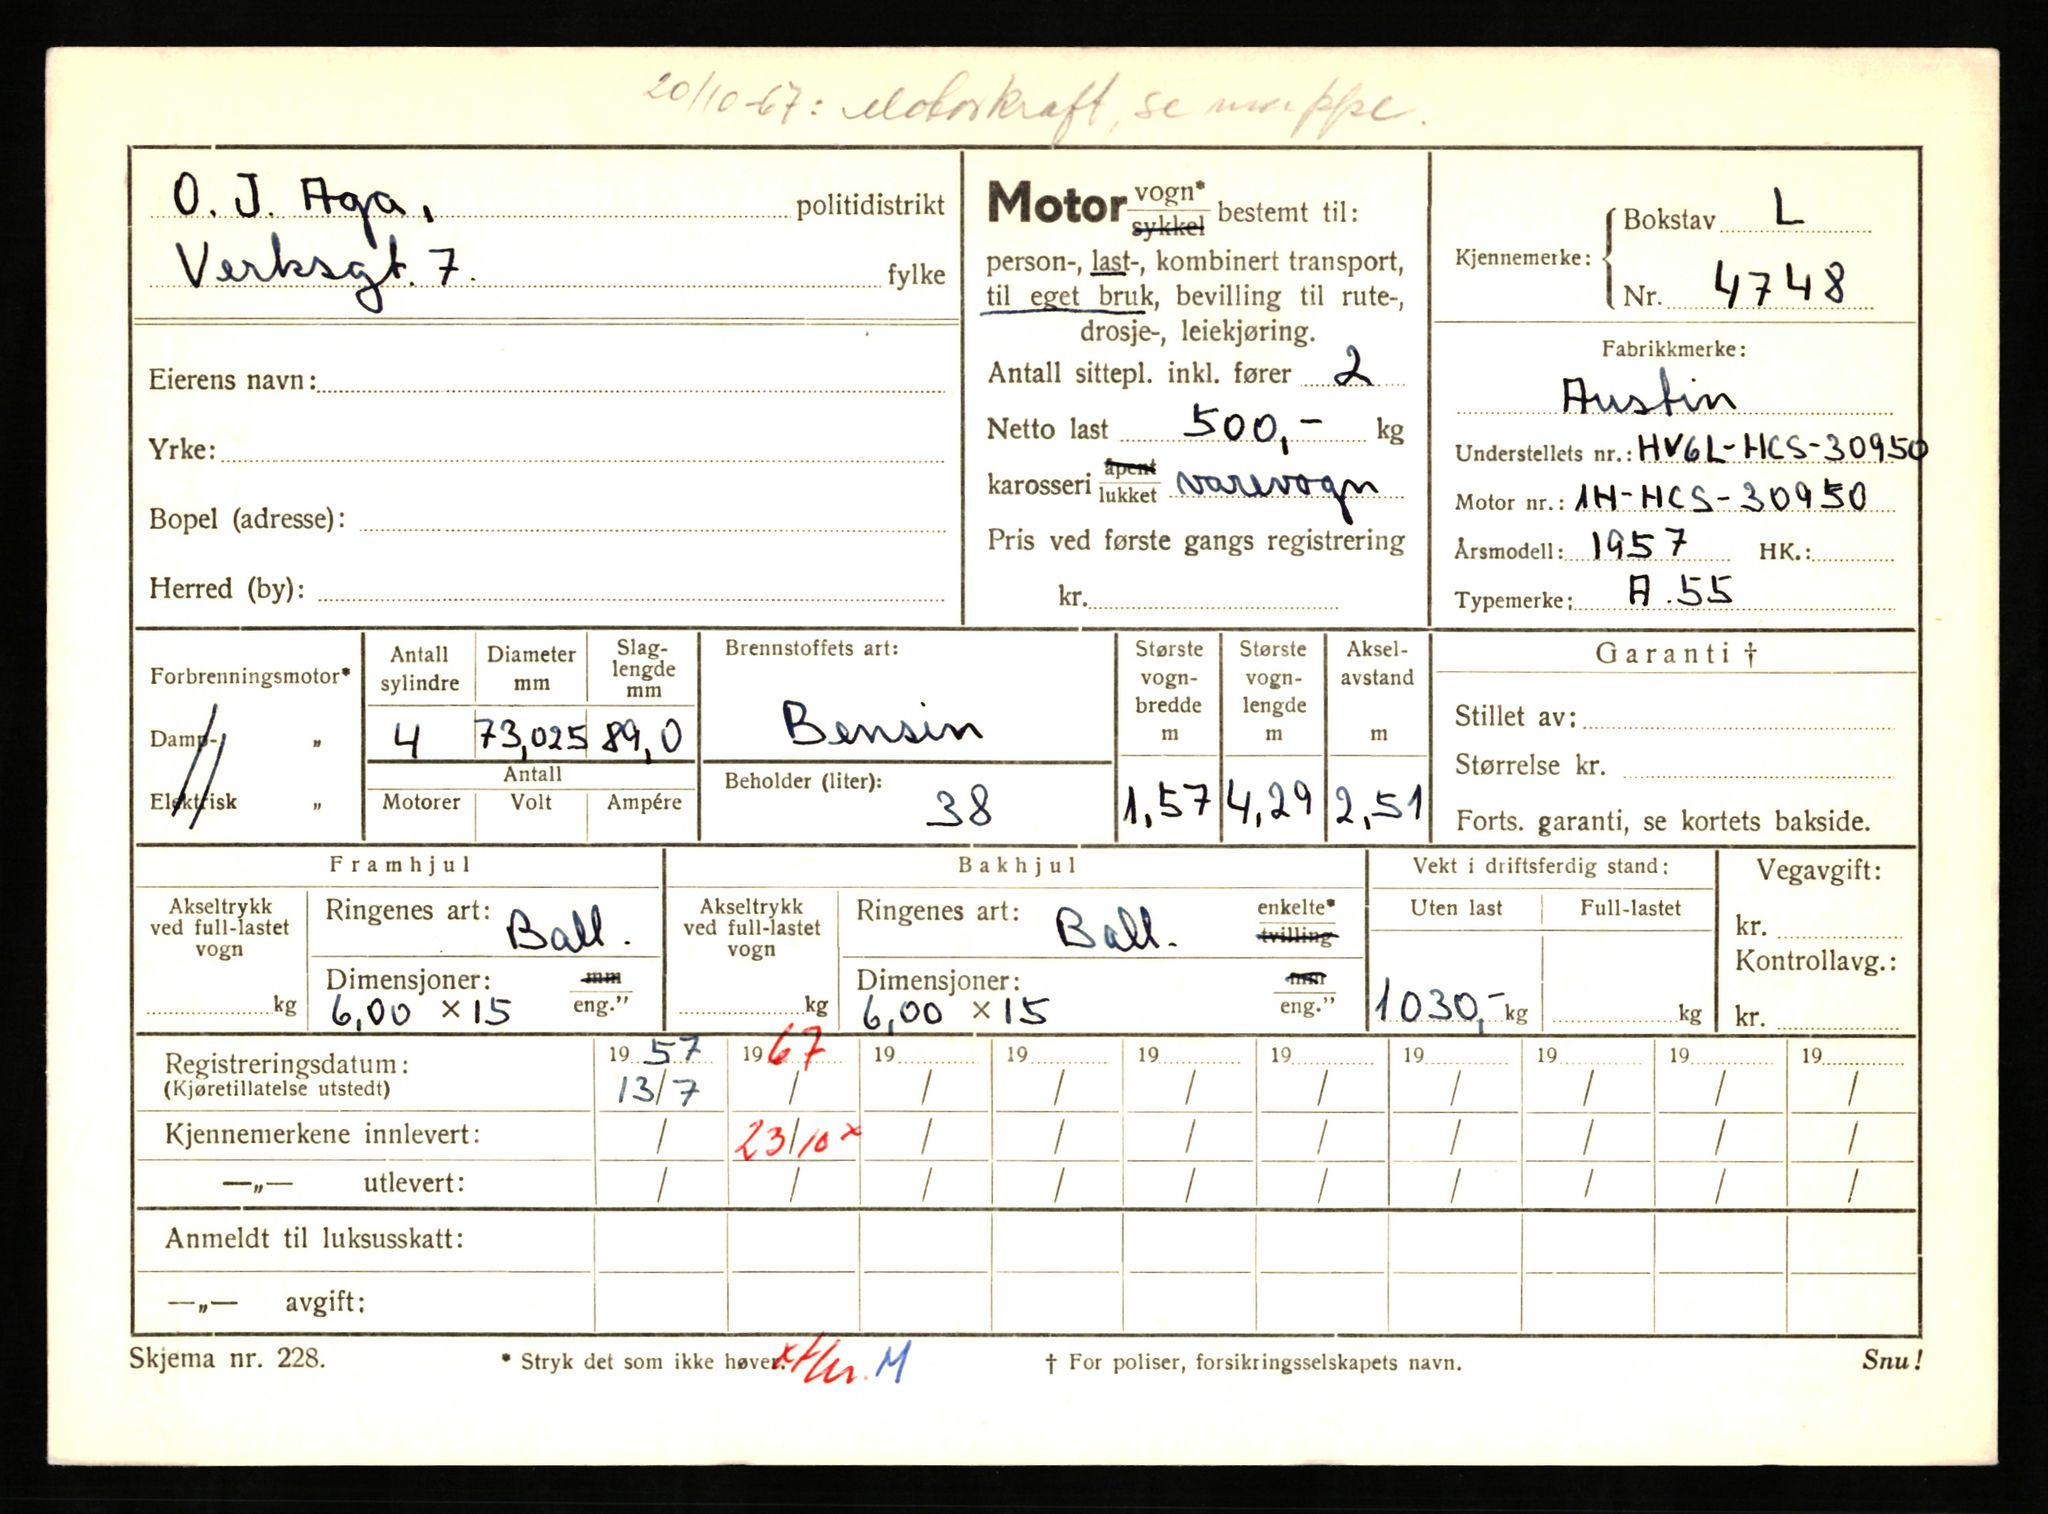 20/10-67: Motorkraft, se mappe.
O. J. Aga, politidistrikt
Verksgt. 7. fylke
Eierens navn:
Yrke:
Bopel (adresse):
Herred (by):
Motor vogn* sykkel bestemt til:
person-, last-, kombinert transport,
til eget bruk, bevilling til rute-,
drosje-, leiekjøring.
Antall sittepl. inkl. fører 2
Netto last 500,- kg
karosseri åpent lukket varevogn
Pris ved første gangs registrering
kr.
Kjennemerke: Bokstav L
Nr. 4748
Fabrikkmerke:
Austin
Understellets nr.: HV6L-HCS-30950
Motor nr.: 1H-HCS-30950
Årsmodell: 1957 HK.:
Typemerke: A.55
Forbrenningsmotor*
Damp- „
Elektrisk „
Antall sylindre
Diameter mm
Slag-
lengde
mm
4 73,025 89,0
Antall
Motorer Volt Ampére
Brennstoffets art:
Bensin
Beholder (liter):
38
Største
vogn-
bredde
m
1,57
Største
vogn-
lengde
m
4,29
Aksel-
avstand
m
2,51
Garanti †
Stillet av:
Størrelse kr.
Forts. garanti, se kortets bakside.
Framhjul
Akseltrykk
ved full-lastet
vogn
kg
Ringenes art: Ball.
Dimensjoner: mm
6,00 x 15 eng.”
Bakhjul
Akseltrykk
ved full-lastet
vogn
kg
Ringenes art: Ball. enkelte*
tvilling
Dimensjoner: mm
6,00 x 15 eng.”
Vekt i driftsferdig stand:
Uten last Full-lastet
1030,- kg kg
Vegavgift:
kr.
Kontrollavg.:
kr.
Registreringsdatum: 19 57 19 67 19 19 19 19 19 19 19 19
(Kjøretillatelse utstedt) 13/7 / / / / / / / / /
Kjennemerkene innlevert: / 23/10 x / / / / / / / /
—„— utlevert: / / / / / / / / / /
Anmeldt til luksusskatt:
—„— avgift:
Skjema nr. 228. * Stryk det som ikke høver. M † For poliser, forsikringsselskapets navn. Snu!